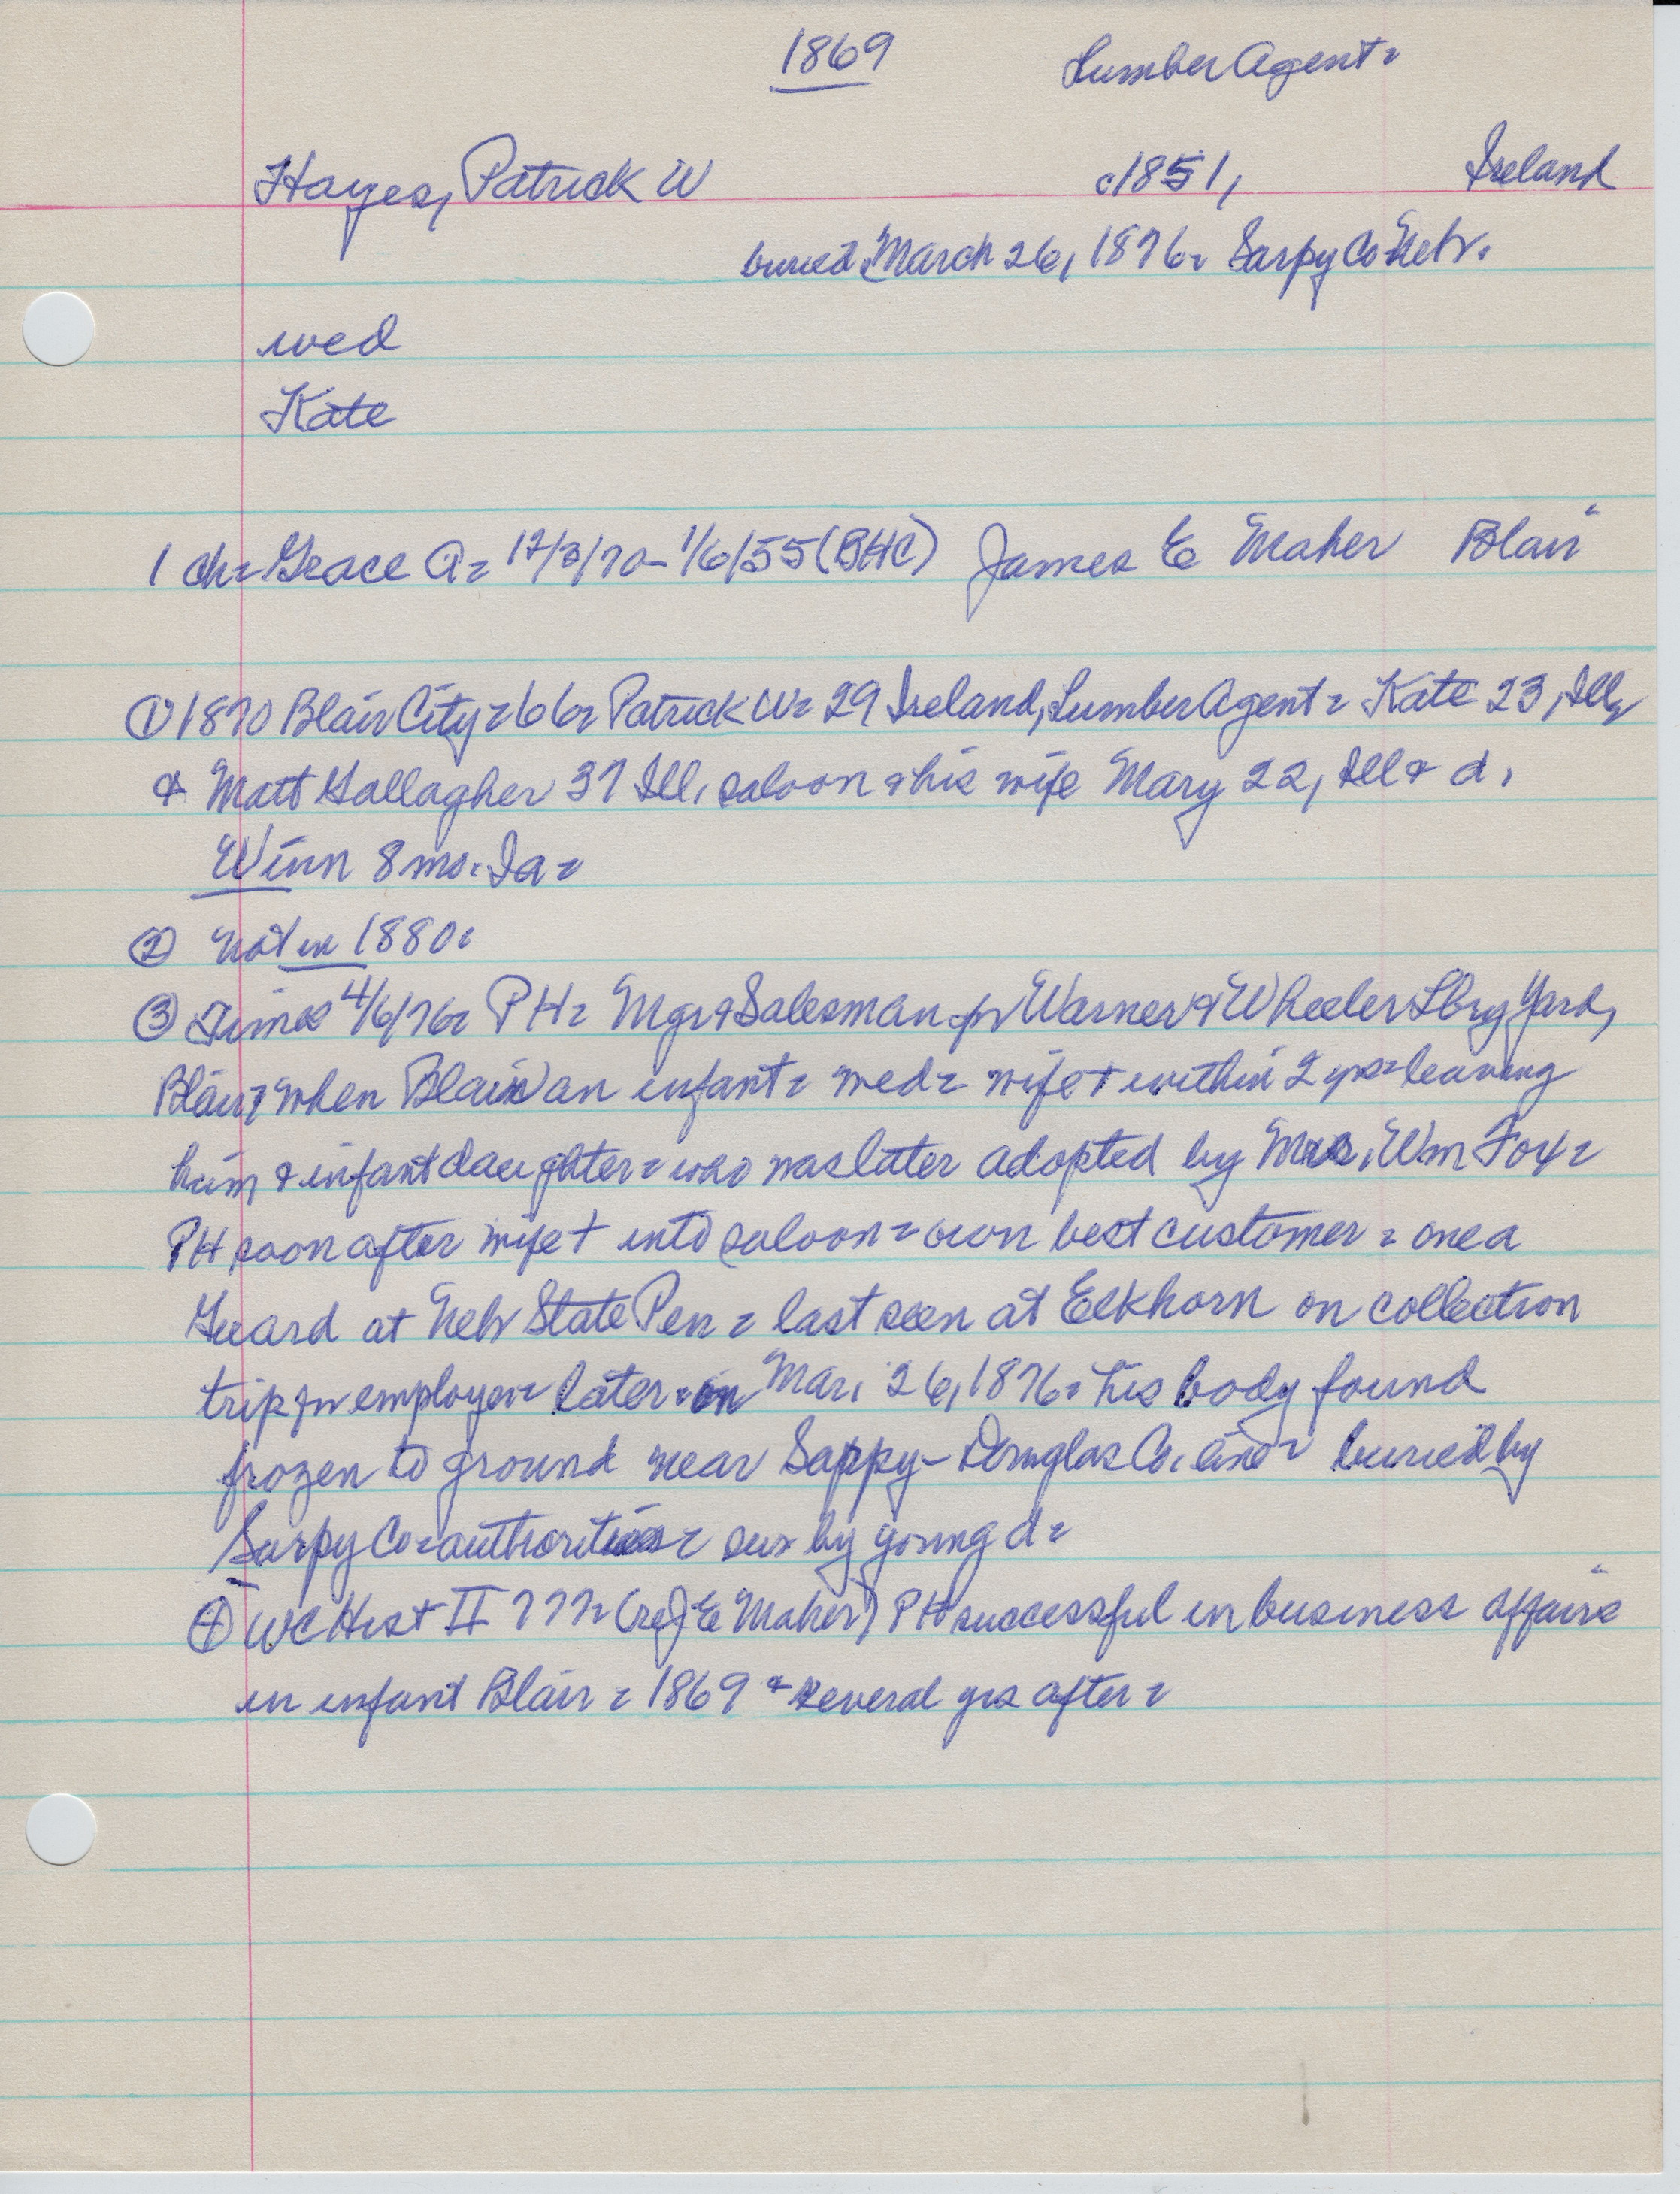 1869 Lumber Agent=
Hayes, Patrick W c1851, Ireland
buried March 26, 1876= Sarpy Co Nebr.
wed
Kate
1 ch= Grace A= 12/3/70-1/6/55 (BHC) James E Maher Blair
① 1870 Blair City= 66= Patrick W= 29 Ireland, Lumber Agent= Kate 23, Ill,
& Matt Gallagher 37 Ill, saloon & his wife Mary 22, Ill & d.
Winn 8 mo. Ia=
② not in 1880.
③ Times 4/6/76= PH= Mgr & Salesman for Warner & Wheeler Lbr Yard,
Blair when Blair an infant= wed= wife + within 2 yrs= leaving
him & infant daughter= who was later adopted by Mrs. Wm Fox=
PH soon after wife + into saloon= own best customer= once a
Guard at Nebr State Pen= last seen at Elkhorn on collection
trip for employer= later= on Mar. 26, 1876= his body found
frozen to ground near Sarpy-Douglas Co. line= buried by
Sarpy Co= authorities= sur by young d=
④ WC Hist II 777= (re J E Maher) PH successful in business affairs
in infant Blair= 1869 & several yrs after=